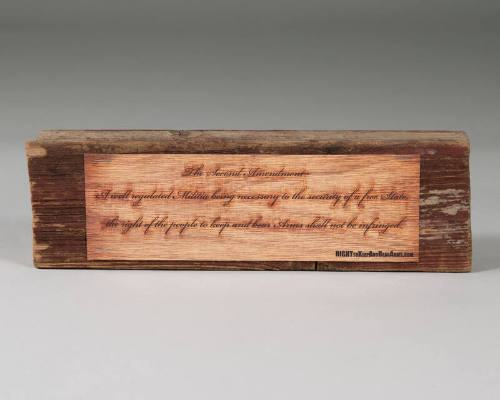 The Second Amendment
A well regulated Militia being necessary to the security of a free State,
the right of the people to keep and bear Arms shall not be infringed.
RIGHTTOKEEPANDBEARARMS.COM